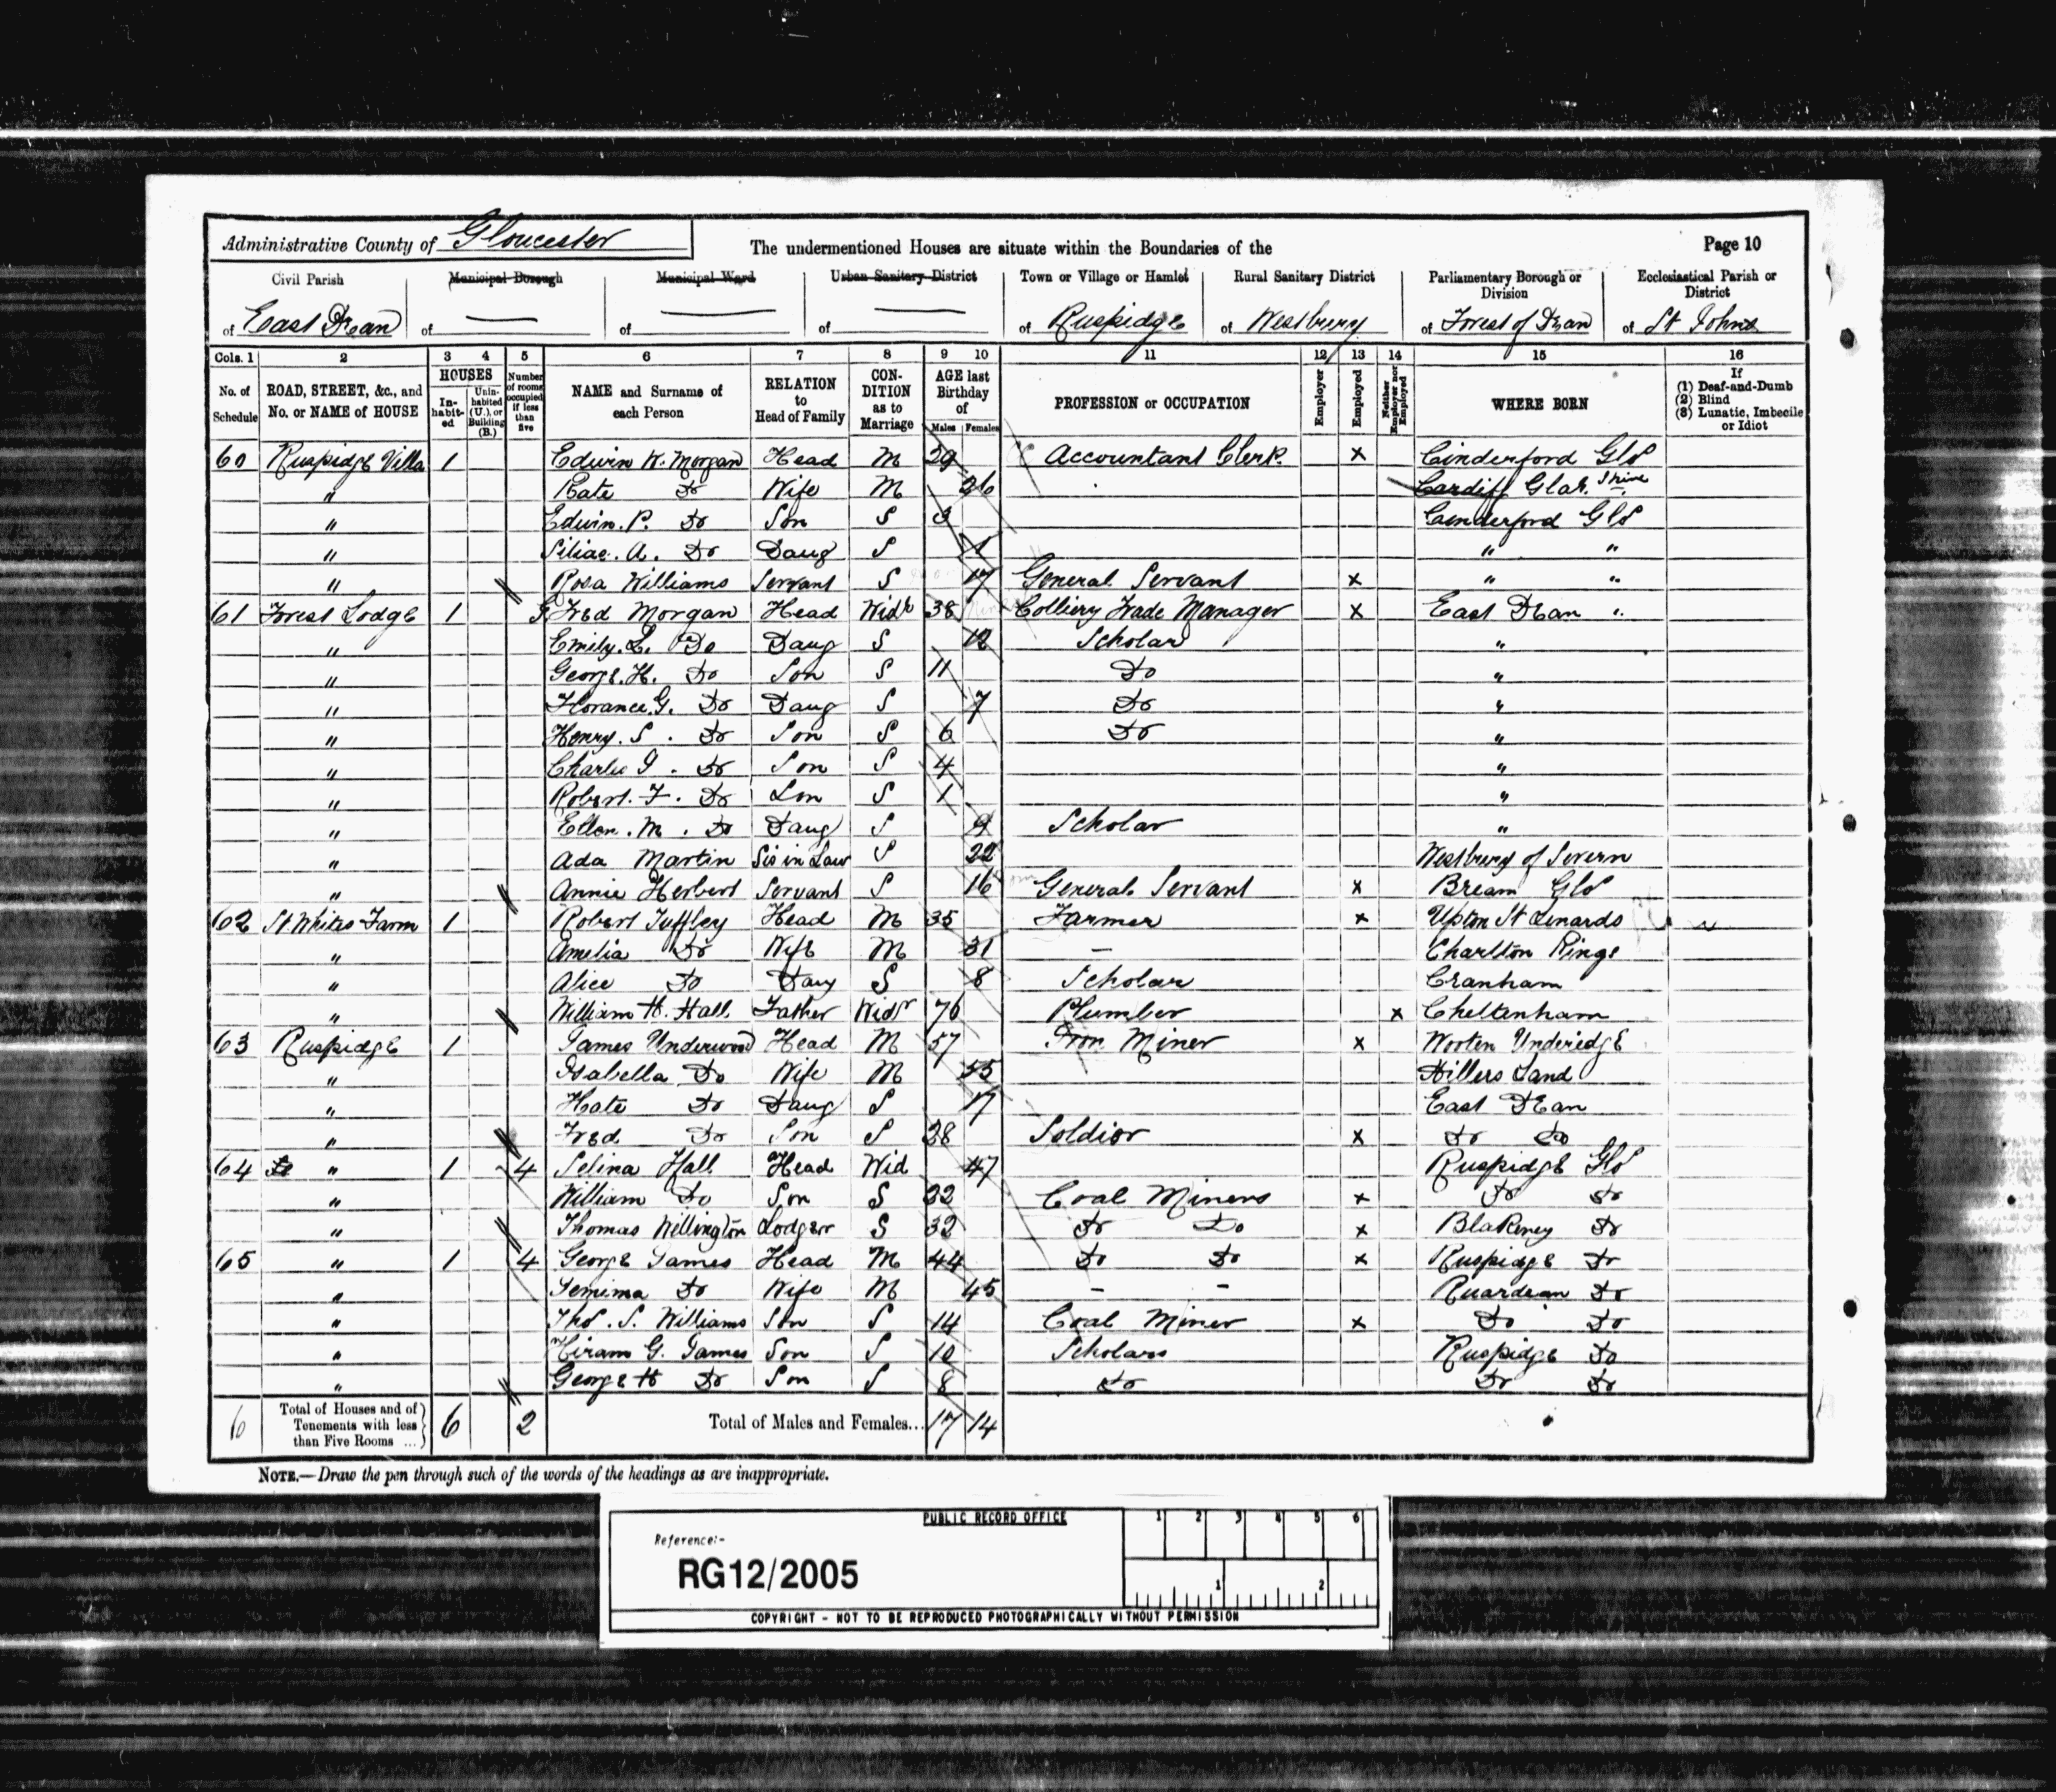 Administrative County of Gloucester
The undermentioned Houses are situate within the Boundaries of the
Page 10
Civil Parish
of East Dean
Municipal Borough
of —
Municipal Ward
of —
Urban Sanitary District
of —
Town or Village or Hamlet
of Ruspidge
Rural Sanitary District
of Westbury
Parliamentary Borough or Division
of Forest of Dean
Ecclesiastical Parish or District
of St Johns
Cols. 1 2 3 4 5 6 7 8 9 10 11 12 13 14 15 16
No. of Schedule
ROAD, STREET, &c., and No. or NAME of HOUSE
HOUSES
Inhabited
Uninhabited (U.), or Building (B.)
Number of rooms occupied if less than five
NAME and Surname of each Person
RELATION to Head of Family
CONDITION as to Marriage
AGE last Birthday of
Males Females
PROFESSION or OCCUPATION
Employer
Employed
Neither Employer nor Employed
WHERE BORN
If (1) Deaf-and-Dumb (2) Blind (3) Lunatic, Imbecile or Idiot
60 Ruspidge Villa 1 Edwin W. Morgan Head M 29 Accountant Clerk. x Cinderford Glos
" Kate Do Wife M 26 Cardiff Glak. Shire
" Edwin. P. Do Son S 3 Cinderford Glos
" A. Do Daug S 1 " "
" Rosa Williams Servant S 17 General Servant x " "
61 Forest Lodge 1 Fred Morgan Head Widr 38 Colliery Trade Manager x East Dean "
" Emily. L. Do Daug S 12 Scholar "
" George. H. Do Son S 11 Do "
" Florance. G. Do Daug S 7 Do "
" Henry. S. Do Son S 6 Do "
" Charlie Do Son S 4 "
" Robert. F. Do Son S 1 "
" Ellen. M. Do Daug S 9 Scholar "
" Ada Martin Sis in Law S 22 Westbury of Severn
" Annie Herbert Servant S 16 General Servant x Bream Glos
62 St Whites Farm 1 Robert Tuffley Head M 35 Farmer x Upton St Lenards
" Amelia Do Wife M 31 — Charlton Kings
" Alice Do Daug S 8 Scholar Cranham
" William H. Hall Father Widr 76 Plumber x Cheltenham
63 Ruspidge 1 James Underwood Head M 57 Iron Miner x Wooten Underidge
" Isabella Do Wife M 55 Hillers Land
" Kate Do Daug S 17 East Dean
" Fred Do Son S 28 Soldier x Do Do
64 " 1 4 Selina Hall Head Wid 47 Ruspidge Glos
" William Do Son S 22 Coal Miners x Do Do
" Thomas Willington Lodger S 32 Do Do x Blakeney Do
65 " 1 4 George James Head M 44 Do Do x Ruspidge Do
" Jemima Do Wife M 45 - - Ruardean Do
" Thos. S. Williams Son S 14 Coal Miner x Do Do
" Hiram G. James Son S 10 Scholars Ruspidge Do
" George H Do Son S 8 Do Do Do
6 Total of Houses and of Tenements with less than Five Rooms ... 6 2 Total of Males and Females... 17 14
NOTE.—Draw the pen through such of the words of the headings as are inappropriate.
PUBLIC RECORD OFFICE
1 2 3 4 5 6
Reference:-
RG12/2005
1 2
COPYRIGHT - NOT TO BE REPRODUCED PHOTOGRAPHICALLY WITHOUT PERMISSION